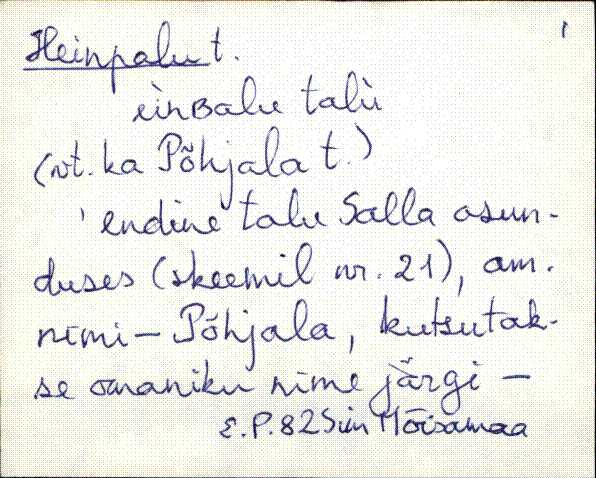 Heinpalu t. 1
èinʙalu talù
(vt. ka Põhjala t.)
' endine talu Salla asun-
duses (skeemil nr. 21), am.
nimi - Põhjala, kutsutak-
se omaniku nime järgi -
E.P. 82 Siin Mõisamaa